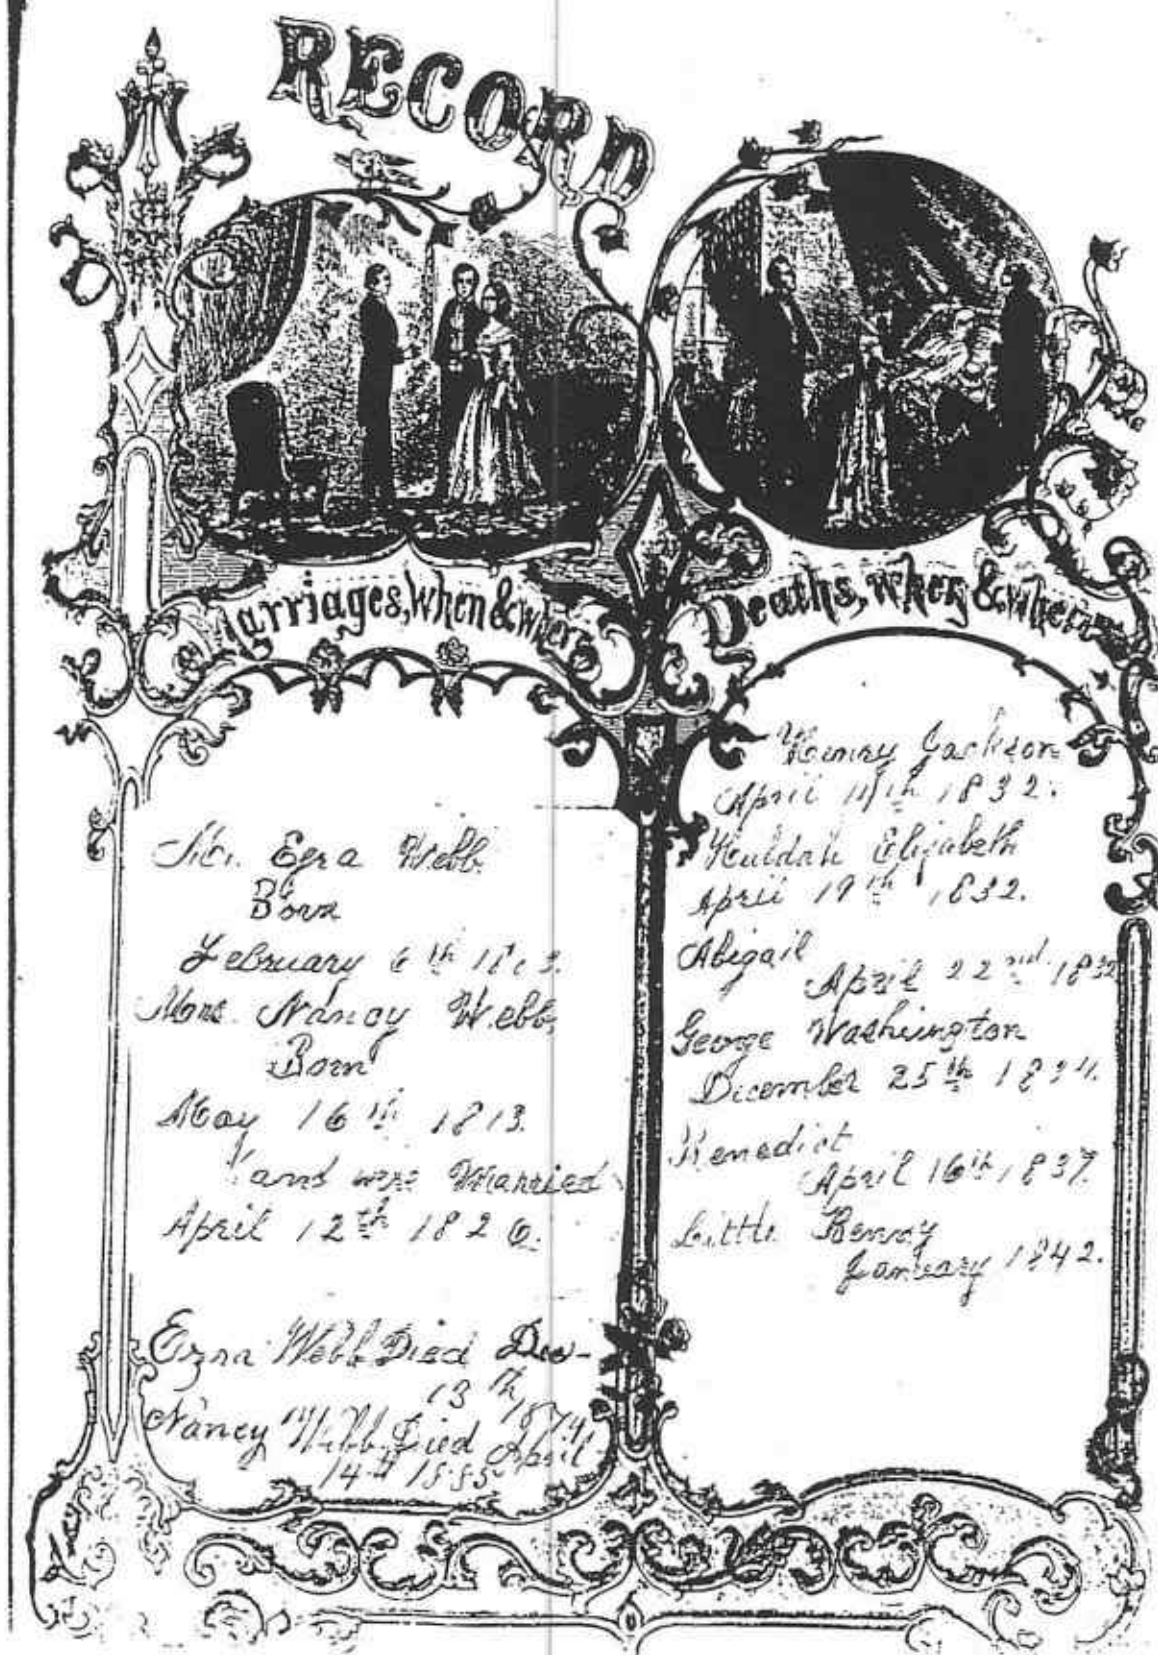 RECORD
Marriages, when & where
Mr. Ezra Webb
Born
February 6th
Mrs. Nancy Webb
Born
May 16th 1813.
and were Married
April 12th 1826.
Ezra Webb Died Dec-
13th
1874,
Nancy Webb Died April
14th 1885
Deaths, when & where
Henry Jackson
April 1832.
Huldah Elizabeth
April 19th 1832.
Abigail
April 22nd 1832
George Washington
December 25th
Benedict
April 16th 1837.
Little Benny
January 1842.